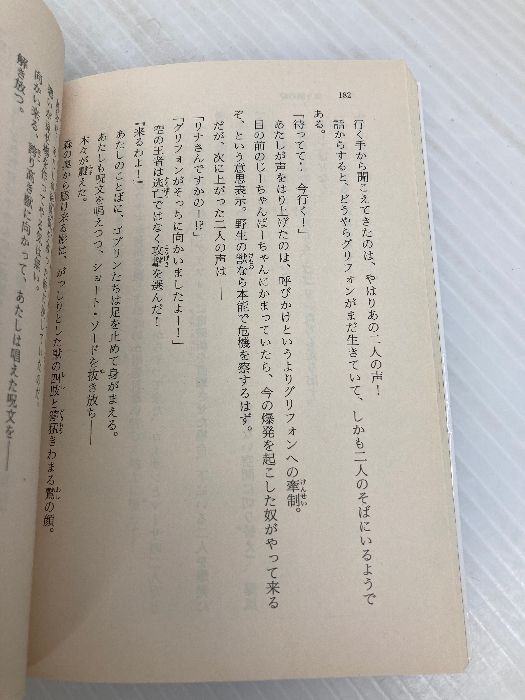 182
行く手から聞こえてきたのは、やはりあの二人の声!
話からすると、どうやらグリフォンがまだ生きていて、しかも二人のそばにいるようで
ある。
「待ってて! 今行く!」
あたしが声をはり上げたのは、呼びかけというよりグリフォンへの牽制。
目の前のじーちゃんばーちゃんにかまっていたら、今の爆発を起こした奴がやって来る
ぞ、という意思表示。野生の獣なら本能で危機を察するはず。
だが、次に上がった二人の声は――
「リナさんですかの-!?」
「グリフォンがそっちに向かいましたよー!」
空の王者は逃亡ではなく攻撃を選んだ!
「来るわよ!」
あたしのことばに、ゴブリンたちは足を止めて身がまえる。
あたしも呪文を唱えつつ、ショート・ソードを抜き放ち――
木々が震えた。
森の奥から駆け来る影は、がっしりとした獣の四肢と獰猛きわまる鷲の顔。
向かい来る、誇り高き獣に向かって、あたしは唱えた呪文を――
解き放つ。